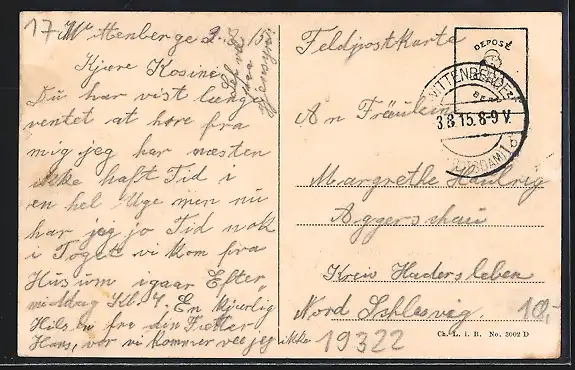 17
Wittenberge 2. 15
Kjære Kosine
Du har vist længe
ventet at høre fra
mig jeg har næsten
ikke haft Tid i
en hel Uge men nu
har jeg jo Tid nok
i Toget vi kom fra
Husum igaar Efter
middag Kl. 4. En kjærlig
Hilsen fra din Fætter
Hans, vor vi kommer ved jeg ikke
Feldpostkarte
An Fräulein
Margrethe
Aggerschau
Kreis Hadersleben
Nord Schleswig
10,-
19322
DEPOSÉ
WITTENBERGE
3.8.15.8-9 V.
(POTSDAM) b
Ch. L. i. B. No. 3002 D